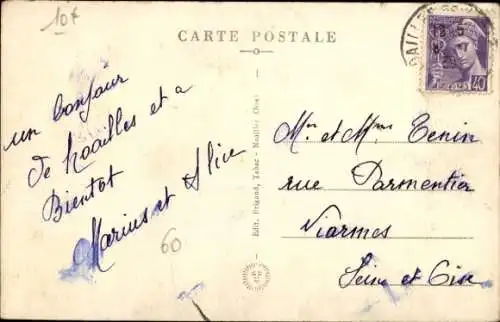 10f
CARTE POSTALE
un bonjour
de Noailles et a
Bientot
Marius et Aline
60
Edit. Frigand, Tabac - Noailles (Oise)
Mr et Mme Tenin
rue Parmentier
Viarmes
Seine et Oise
40